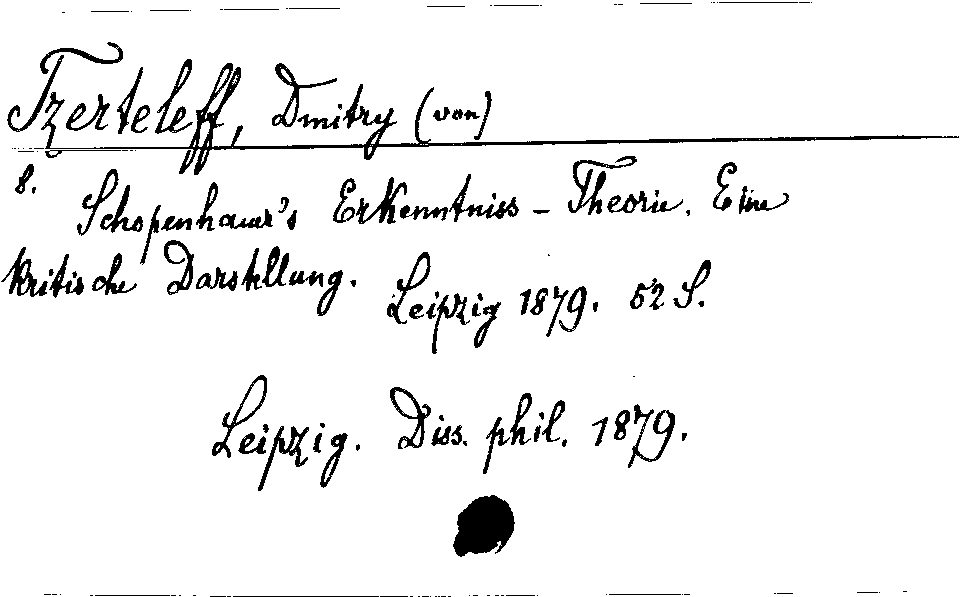 Tzerteleff, Dmitry (von)
8.
Schopenhauer's Erkenntniss-Theorie. Eine
kritische Darstellung.
Leipzig 1879. 52 S.
Leipzig. Diss. phil. 1879.